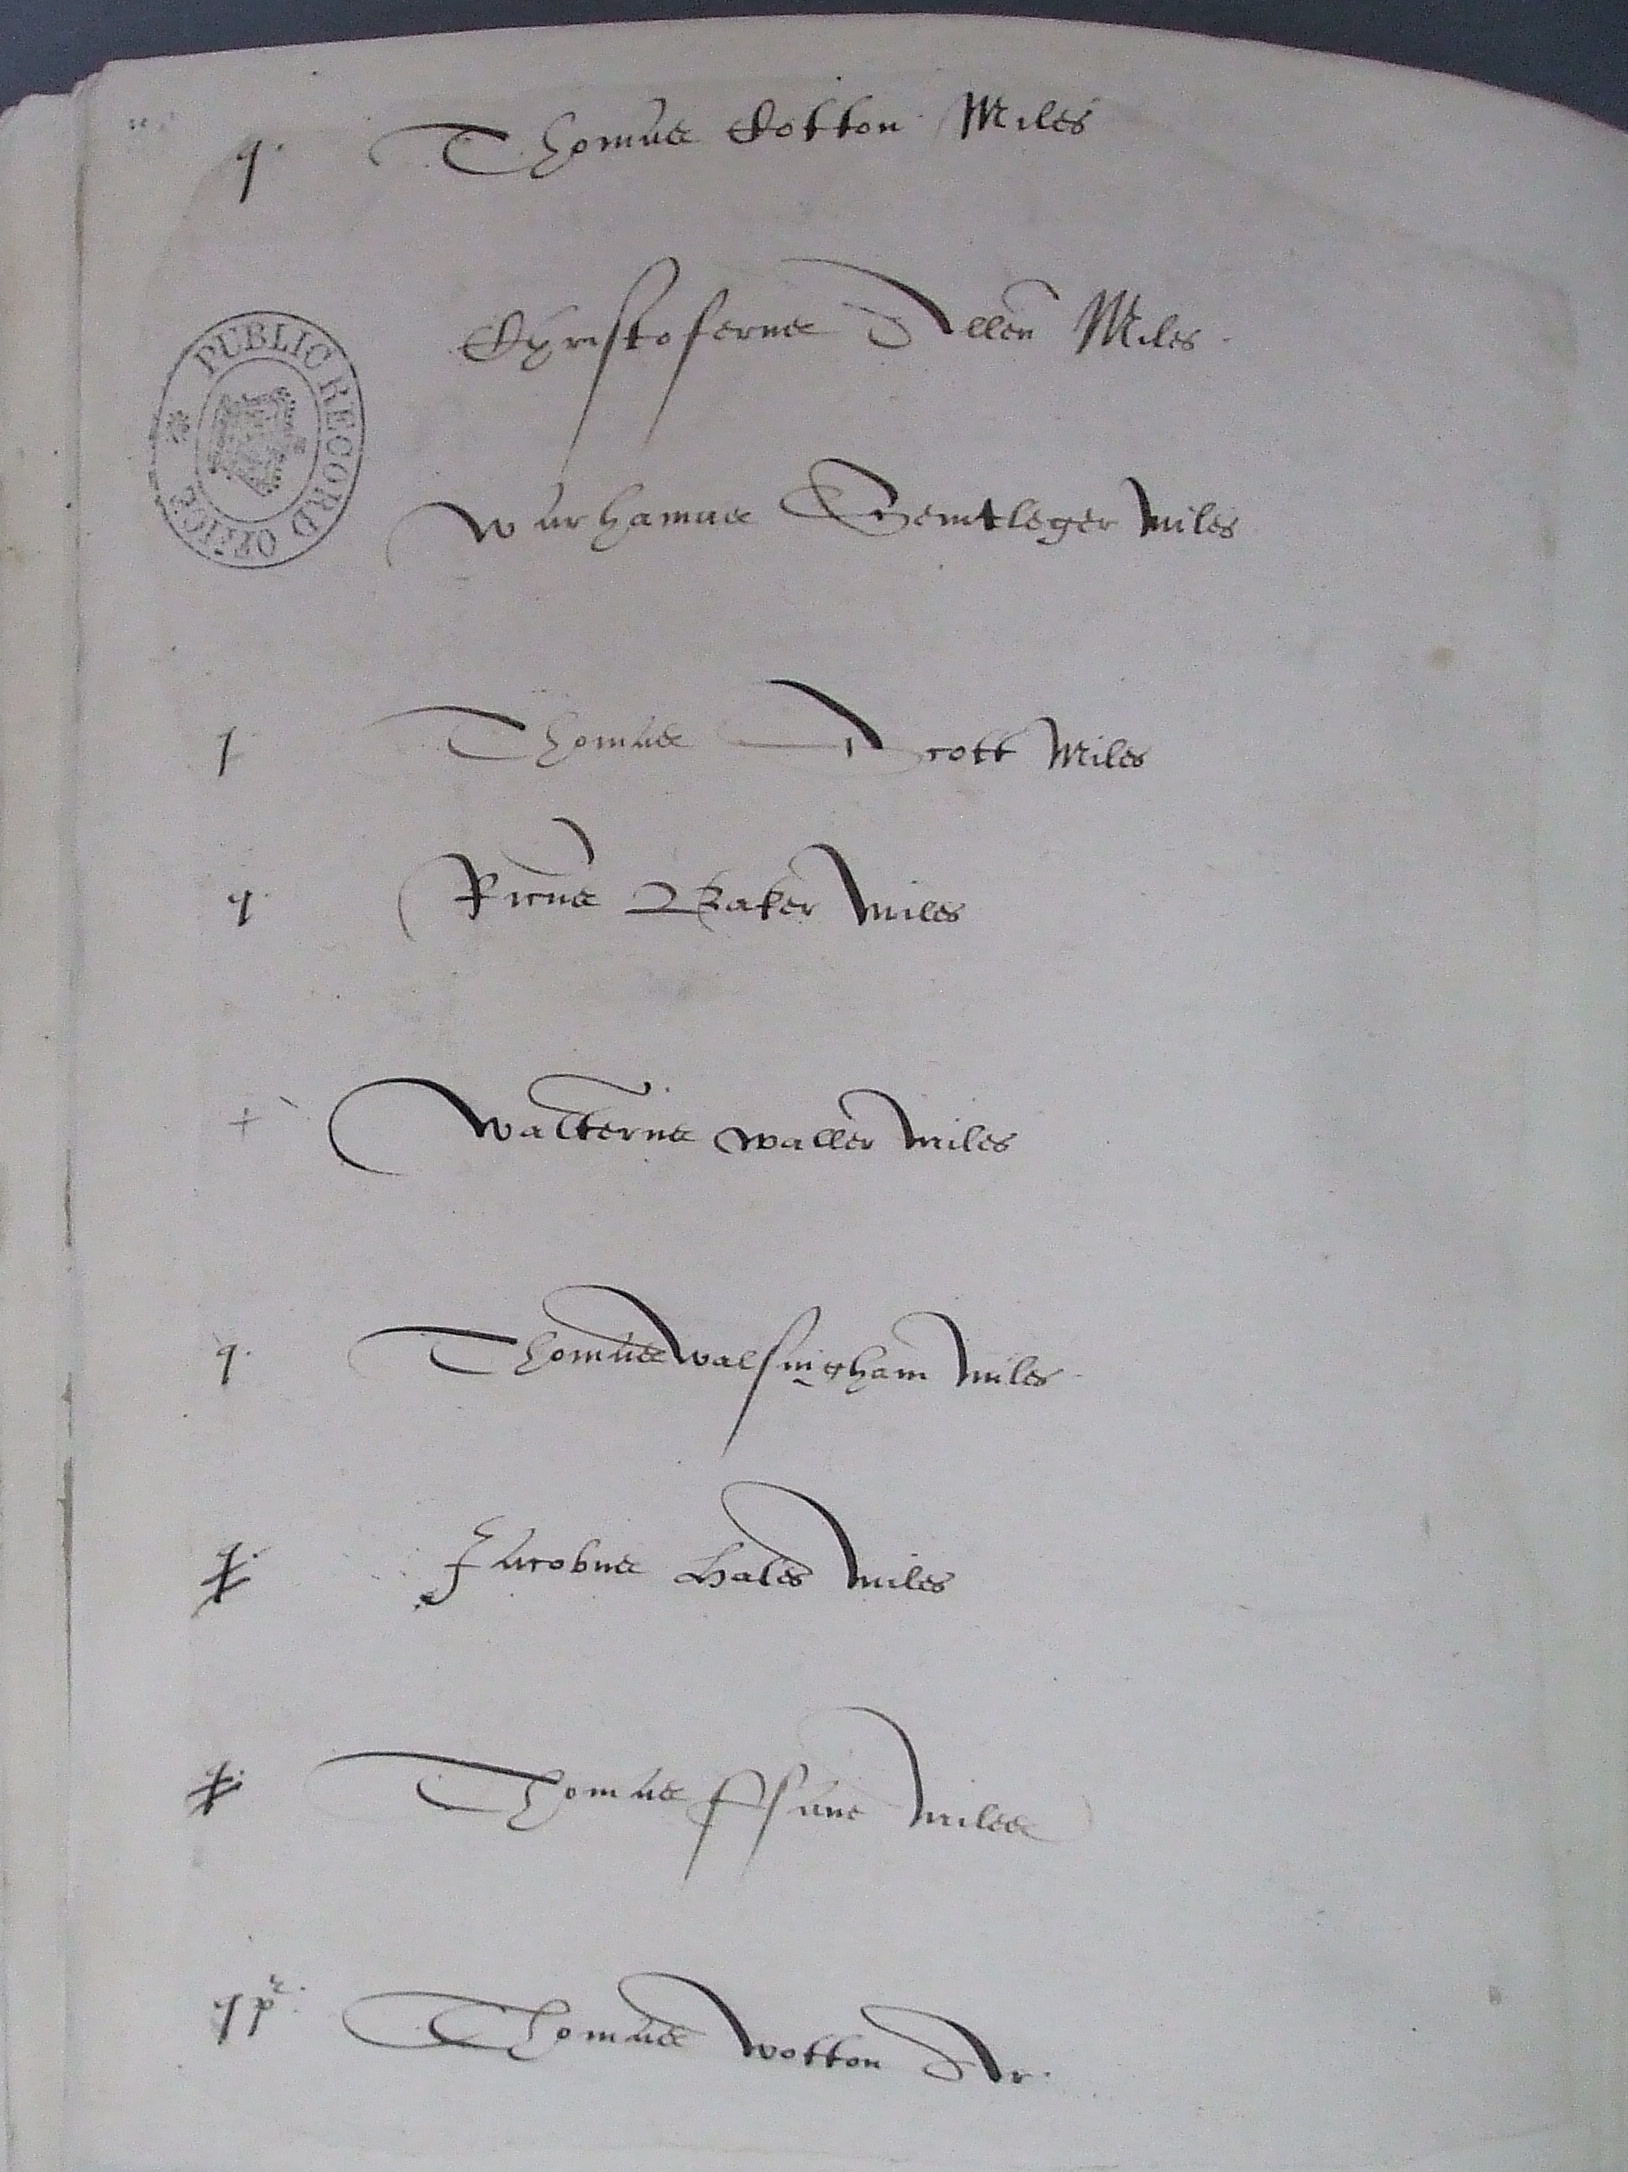 q. Thomas Cotton Miles
Christoferus Allen Miles.
PUBLIC RECORD OFFICE
Warhamus Sentleger miles
q Thomas Scott Miles
q. Ricus Baker miles
+ Walterus Waller miles
q. Thomas Walsingham miles.
q. Jacobus Hales miles
q. Thomas ffane miles
q pr. Thomas Wotton Ar.